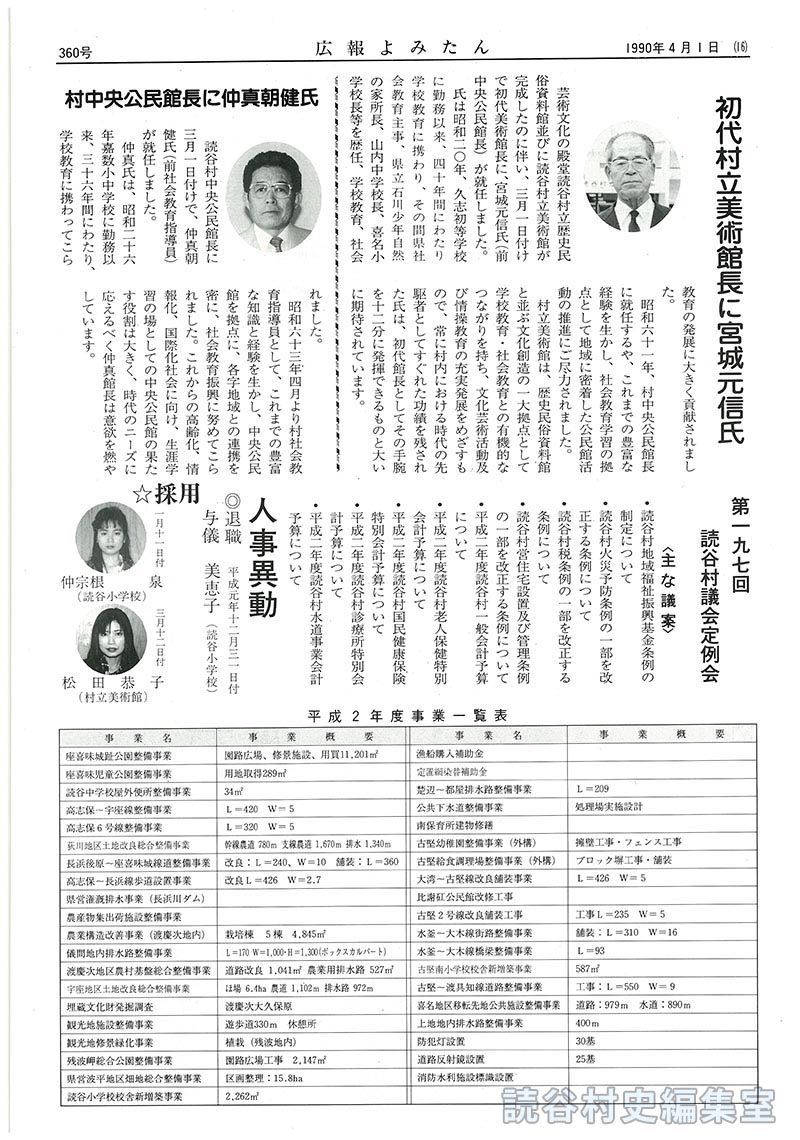 360号
広報よみたん
1990年4月1日 (16)
初代村立美術館長に宮城元信氏
芸術文化の殿堂読谷村立歴史民
俗資料館並びに読谷村立美術館が
完成したのに伴い、三月一日付け
で初代美術館長に、宮城元信氏(前
中央公民館長)が就任しました。
氏は昭和二〇年、久志初等学校
に勤務以来、四十年間にわたり
学校教育に携わり、その間県社
会教育主事、県立石川少年自然
の家所長、山内中学校長、喜名小
学校長等を歴任、学校教育、社会
教育の発展に大きく貢献されまし
た。
昭和六十一年、村中央公民館長
に就任するや、これまでの豊富な
経験を生かし、社会教育学習の拠
点として地域に密着した公民館活
動の推進にご尽力されました。
村立美術館は、歴史民俗資料館
と並ぶ文化創造の一大拠点として
学校教育・社会教育との有機的な
つながりを持ち、文化芸術活動及
び情操教育の充実発展をめざすも
ので、常に村内における時代の先
駆者としてすぐれた功績を残され
た氏は、初代館長としてその手腕
を十二分に発揮できるものと大い
に期待されています。
村中央公民館長に仲真朝健氏
読谷村中央公民館長に
三月一日付けで、仲真朝
健氏(前社会教育指導員)
が就任しました。
仲真氏は、昭和二十六
年嘉数小中学校に勤務以
来、三十六年間にわたり、
学校教育に携わってこら
れました。
昭和六十三年四月より村社会教
育指導員として、これまでの豊富
な知識と経験を生かし、中央公民
館を拠点に、各字地域との連携を
密に、社会教育振興に努めてこら
れました。これからの高齢化、情
報化、国際化社会に向け、生涯学
習の場としての中央公民館の果た
す役割は大きく、時代のニーズに
応えるべく仲真館長は意欲を燃や
しています。
第一九七回
読谷村議会定例会
〈主な議案〉
・読谷村地域福祉振興基金条例の
制定について
・読谷村火災予防条例の一部を改
正する条例について
・読谷村税条例の一部を改正する
条例について
・読谷村営住宅設置及び管理条例
の一部を改正する条例について
・平成二年度読谷村一般会計予算
について
・平成二年度読谷村老人保健特別
会計予算について
・平成二年度読谷村国民健康保険
特別会計予算について
・平成二年度読谷村診療所特別会
計予算について
・平成二年度読谷村水道事業会計
予算について
人事異動
◎退職 平成元年十二月三一日付
与儀 美恵子(読谷小学校)
☆採用
一月十一日付
仲宗根 泉
(読谷小学校)
三月十二日付
松田恭子
(村立美術館)
平成2年度事業一覧表
事業名 事業概要 事業名 事業概要
座喜味城趾公園整備事業 園路広場、修景施設、用買11,201㎡ 漁船購入補助金
座喜味児童公園整備事業 用地取得289㎡ 定置網染替補助金
読谷中学校屋外便所整備事業 34㎡ 楚辺~都屋排水路整備事業 L=209
高志保~宇座線整備事業 L=420 W=5 公共下水道整備事業 処理場実施設計
高志保6号線整備事業 L=320 W=5 南保育所建物修繕
荻川地区土地改良総合整備事業 幹線農道 780m 支線農道 1,670m 排水 1,340m 古堅幼稚園整備事業(外構) 擁壁工事・フェンス工事
長浜後原~座喜味城線道整備事業 改良:L=240、W=10 舗装:L=360 古堅給食調理場整備事業(外構) ブロック塀工事・舗装
高志保~長浜線歩道設置事業 改良L=426 W=2.7 大湾~古堅線改良舗装事業 L=426 W=5
県営潅漑排水事業(長浜川ダム) 比謝矼公民館改修工事
農産物集出荷施設整備事業 古堅2号線改良舗装工事 工事L=235 W=5
農業構造改善事業(渡慶次地内) 栽培棟 5棟 4,845㎡ 水釜~大木線街路整備事業 舗装:L=310 W=16
儀間地内排水路整備事業 L=170 W=1,000・H=1,300(ボックスカルバート) 水釜~大木線橋梁整備事業 L=93
渡慶次地区農村基盤総合整備事業 道路改良 1,041㎡ 農業用排水路 527㎡ 古堅南小学校校舎新増築事業 587㎡
宇座地区土地改良総合整備事業 ほ場 6.4ha 農道 1,102m 排水路 972m 古堅~渡具知線道路整備事業 工事:L=550 W=9
埋蔵文化財発掘調査 渡慶次大久保原 喜名地区移転先地公共施設整備事業 道路:979m 水道:890m
観光地施設整備事業 遊歩道330m 休憩所 上地地内排水路整備事業 400m
観光地修景緑化事業 植栽(残波地内) 防犯灯設置 30基
残波岬総合公園整備事業 園路広場工事 2,147㎡ 道路反射鏡設置 25基
県営波平地区畑地総合整備事業 区画整理:15.8ha 消防水利施設標識設置
読谷小学校校舎新増築事業 2,262㎡
読谷村史編集室